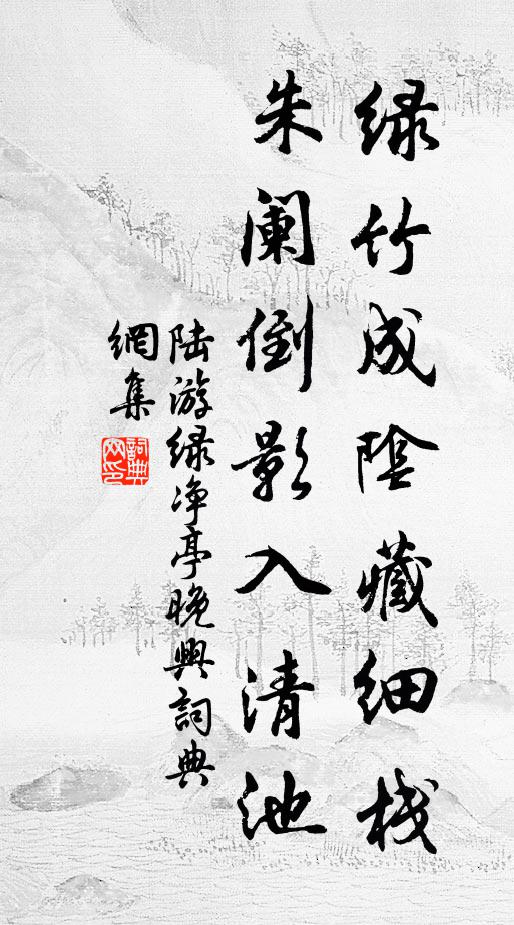 绿竹成阴藏细栈
朱阑倒影入清池
陆游绿净亭晚興詞典
網集
詞典网印